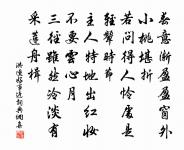 春意漸盈盈窗外
小桃堪折
若問得人憐處是
輕顰時節
主人特地出紅妝
不要雲心月
三徑雖然冷淡有
采蓮舟楫
洪適好事近詞典網